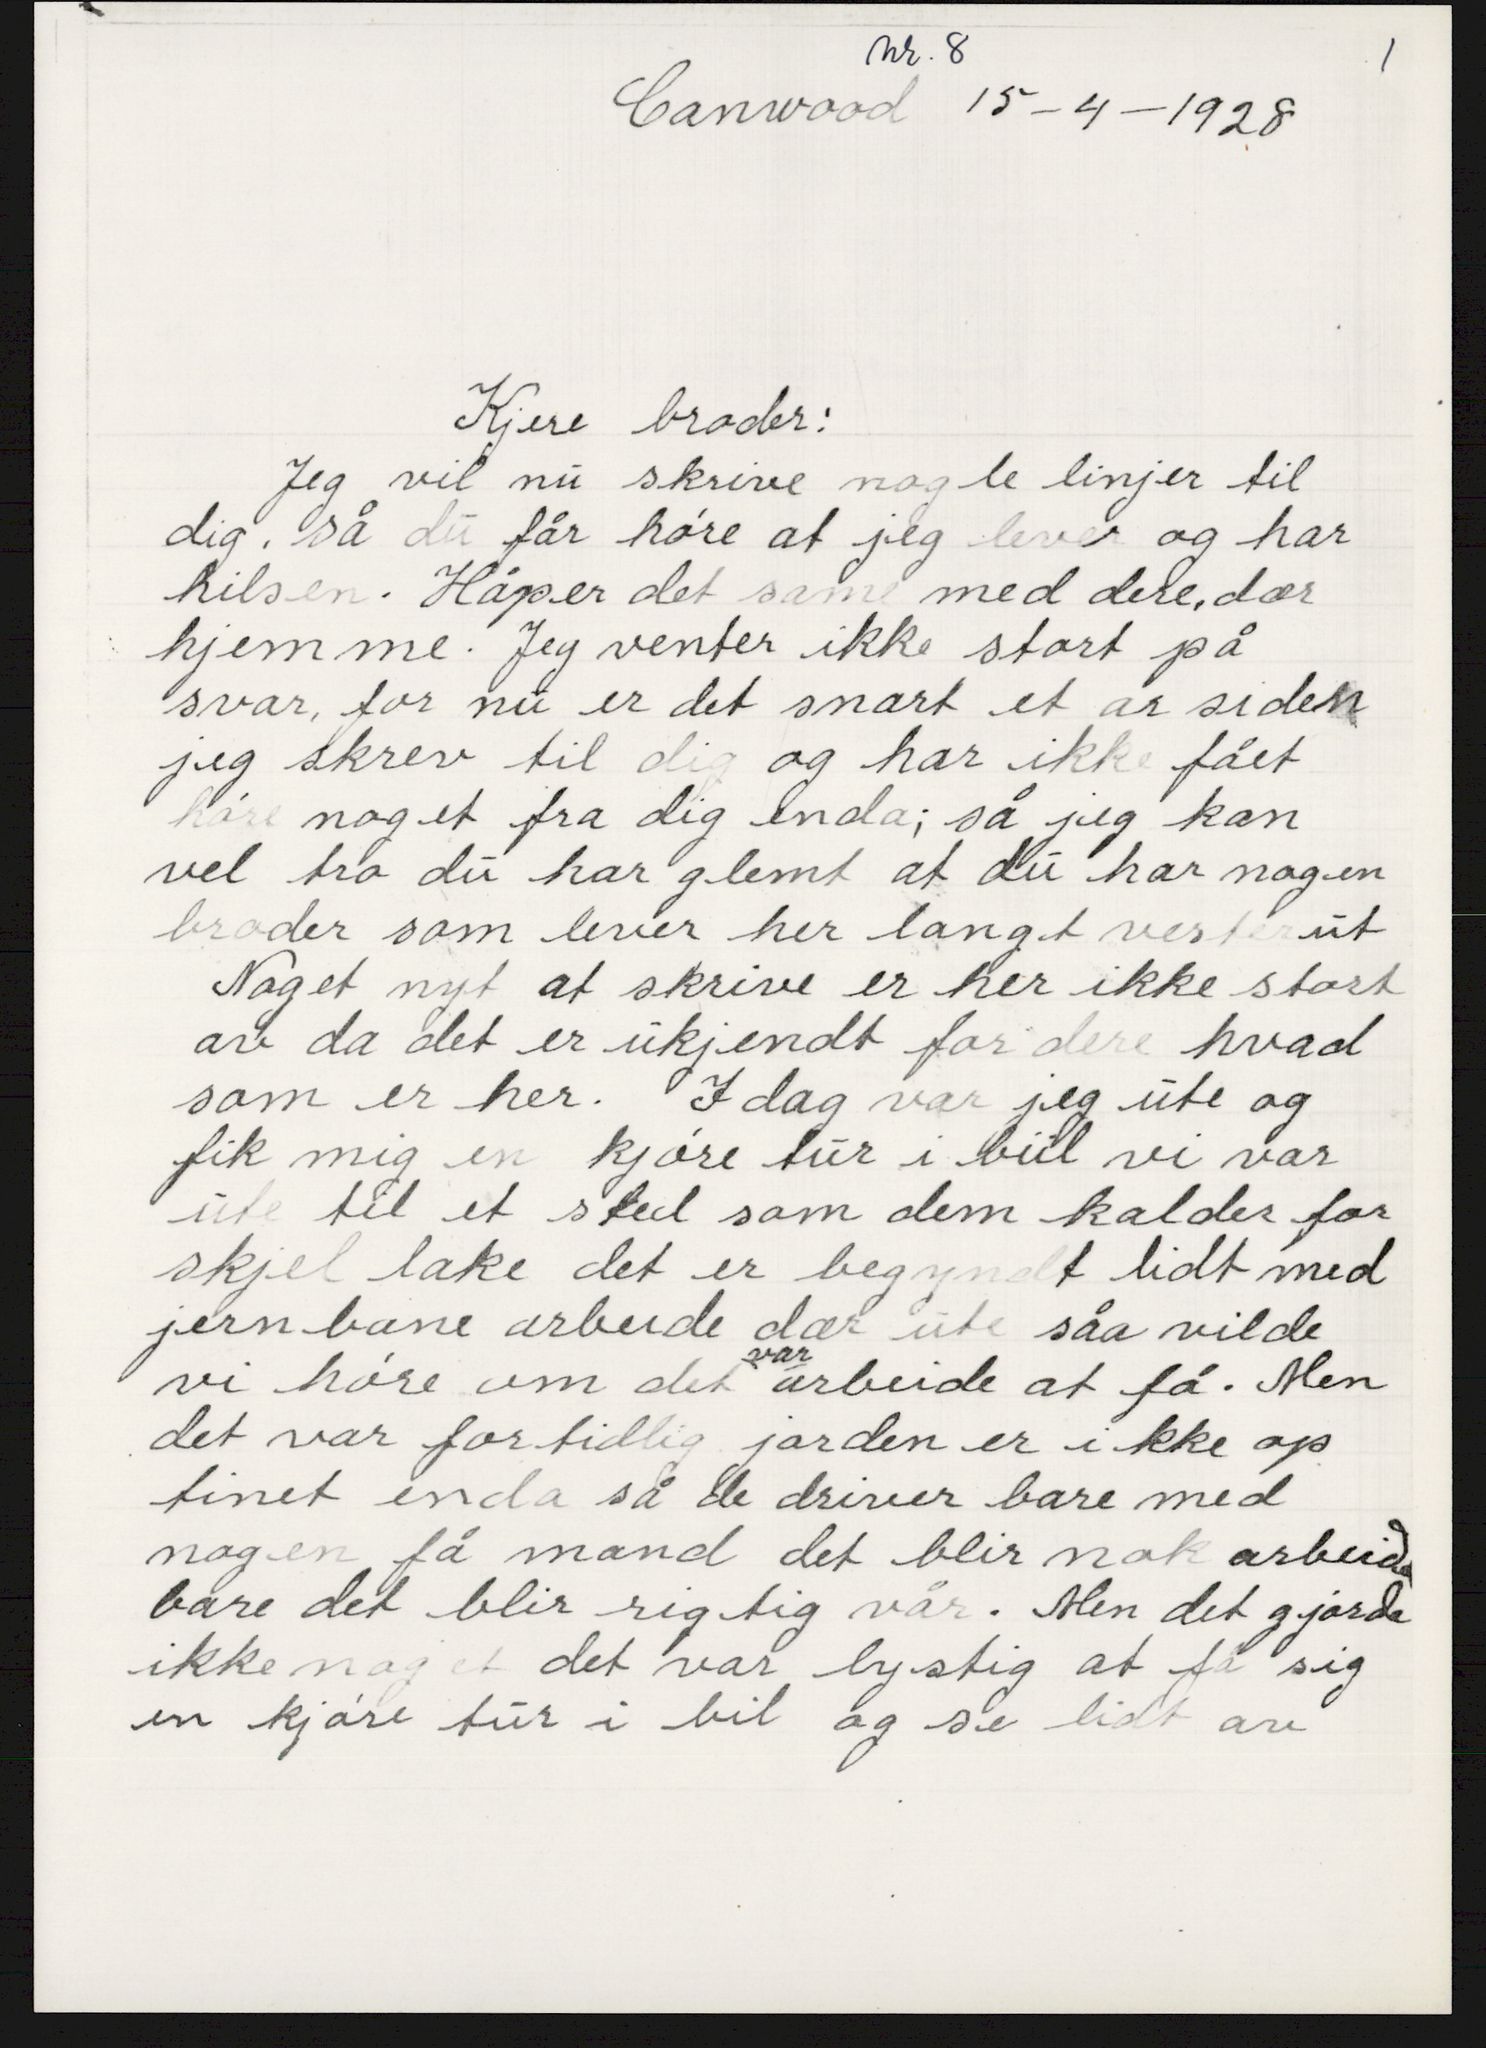 nr. 8
1
Canwood 15-4-1928
Kjere broder:
Jeg vil nu skrive nogle linjer til
dig. så du får høre at jeg lever og har
hilsen. Håper det same med dere, dær
hjemme. Jeg venter ikke stort på
svar, for nu er det snart et ar siden
jeg skrev til dig og har ikke fået
høre noget fra dig enda; så jeg kan
vel tro du har glemt at du har nogen
broder som lever her langt vesterut
Noget nyt at skrive er her ikke stort
av da det er ukjendt for dere hvad
som er her. I dag var jeg ute og
fik mig en kjøre tur i biil vi var
ute til et sted som dem kalder for
skjel lake det er begyndt lidt med
jernbane arbeide dær ute såa vilde
vi høre om det var arbeide at få. Men
det var fortidlig jorden er ikke op
tinet enda så de driver bare med
nogen få mand det blir nok arbeide
bare det blir rigtig vår. Men det gjorde
ikke noget det var lystig at få sig
en kjøre tur i bil og se lidt av